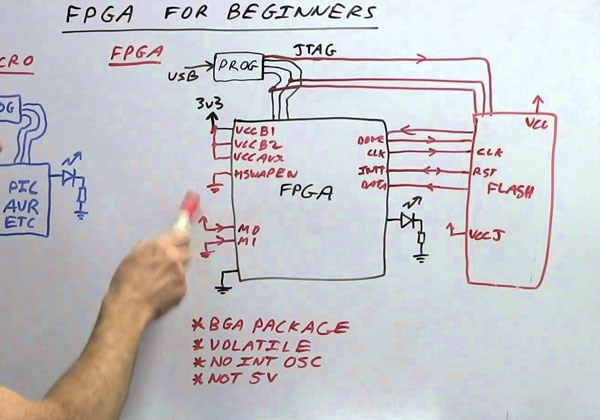 FPGA FOR BEGINNERS
CRO
FPGA
JTAG
PROG
USB
3V3
VCCB1
VCCB2
VCCAUX
HSWAPEN
M0
M1
FPGA
DONE
CLK
INIT
DATA
VCC
CLK
RST
FLASH
VCCJ
OG
PIC
AVR
ETC
*BGA PACKAGE
*VOLATILE
*NO INT OSC
*NOT 5V